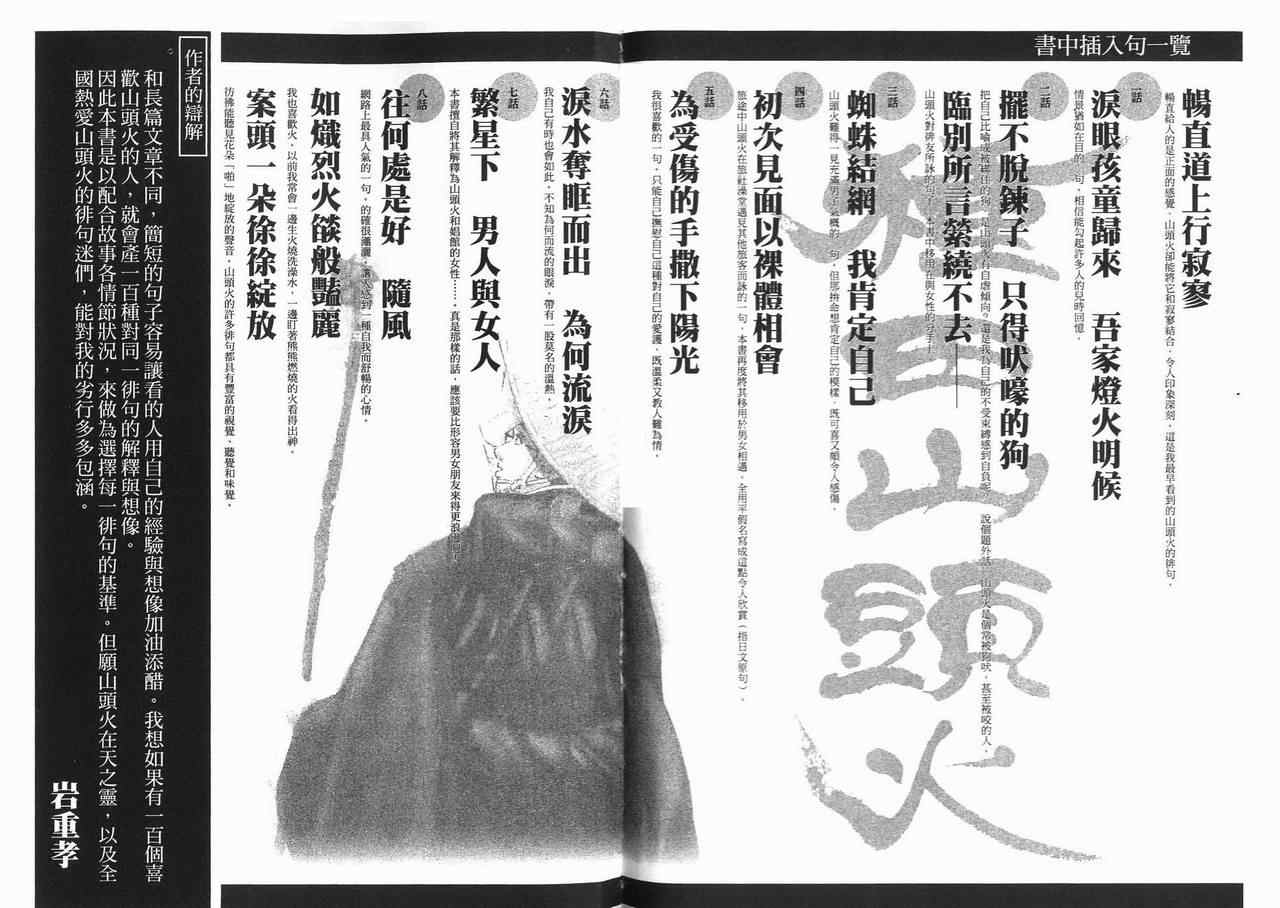 書中插入句一覽
暢直道上行寂寥
暢直給人的是正面的感覺、山頭火卻能將它和寂寥結合，令人印象深刻，這是我最早看到的山頭火的俳句。
一話
淚眼孩童歸來　吾家燈火明候
情景猶如在目的一句，相信能勾起許多人的兒時回憶。
二話
擺不脫鍊子　只得吠嚎的狗
把自己比喻成被綁住的狗，是山頭火有自虐傾向？還是我為自己的不受束縛感到自負呢。　說個題外話，山頭火是個常被狗吠，甚至被咬的人。
臨別所言縈繞不去——
山頭火對俳友所詠的句子，書中移用在與女性的分手上。
三話
蜘蛛結網　我肯定自己
山頭火難得一見充滿男子氣概的一句，但那拚命想肯定自己的模樣，既可喜又頗令人感傷。
四話
初次見面以裸體相會
旅途中山頭火在旅社澡堂遇見其他旅客而詠的一句，本書再度將其移用於男女相遇，全用平假名寫成這點令人欣賞（指日文原句）。
五話
為受傷的手撒下陽光
我很喜歡的一句，只能自己撫慰自己這種對自己的愛護，既溫柔又教人難為情。
六話
淚水奪眶而出　為何流淚
我自己有時也會如此，不知為何而流的眼淚，帶有一股莫名的溫熱。
七話
繁星下　男人與女人
本書擅自將其解釋為山頭火和娼館的女性……，真是那樣的話，應該要比形容男女朋友來得更浪漫吧。
八話
往何處是好　隨風
網路上最具人氣的一句，的確很瀟灑，讓人感到一種自我而舒暢的心情。
如熾烈火燄般豔麗
我也喜歡火，以前我常會一邊生火燒洗澡水，一邊盯著熊熊燃燒的火看得出神。
案頭一朵徐徐綻放
彷彿能聽見花朵「啪」地綻放的聲音，山頭火的許多俳句都具有豐富的視覺、聽覺和味覺。
山頭火
作者的辯解
和長篇文章不同，簡短的句子容易讓看的人用自己的經驗與想像加油添醋。我想如果有一百個喜
歡山頭火的人，就會產一百種對同一俳句的解釋與想像。
因此本書是以配合故事各情節狀況，來做為選擇每一俳句的基準。但願山頭火在天之靈，以及全
國熱愛山頭火的俳句迷們，能對我的劣行多多包涵。
岩重孝